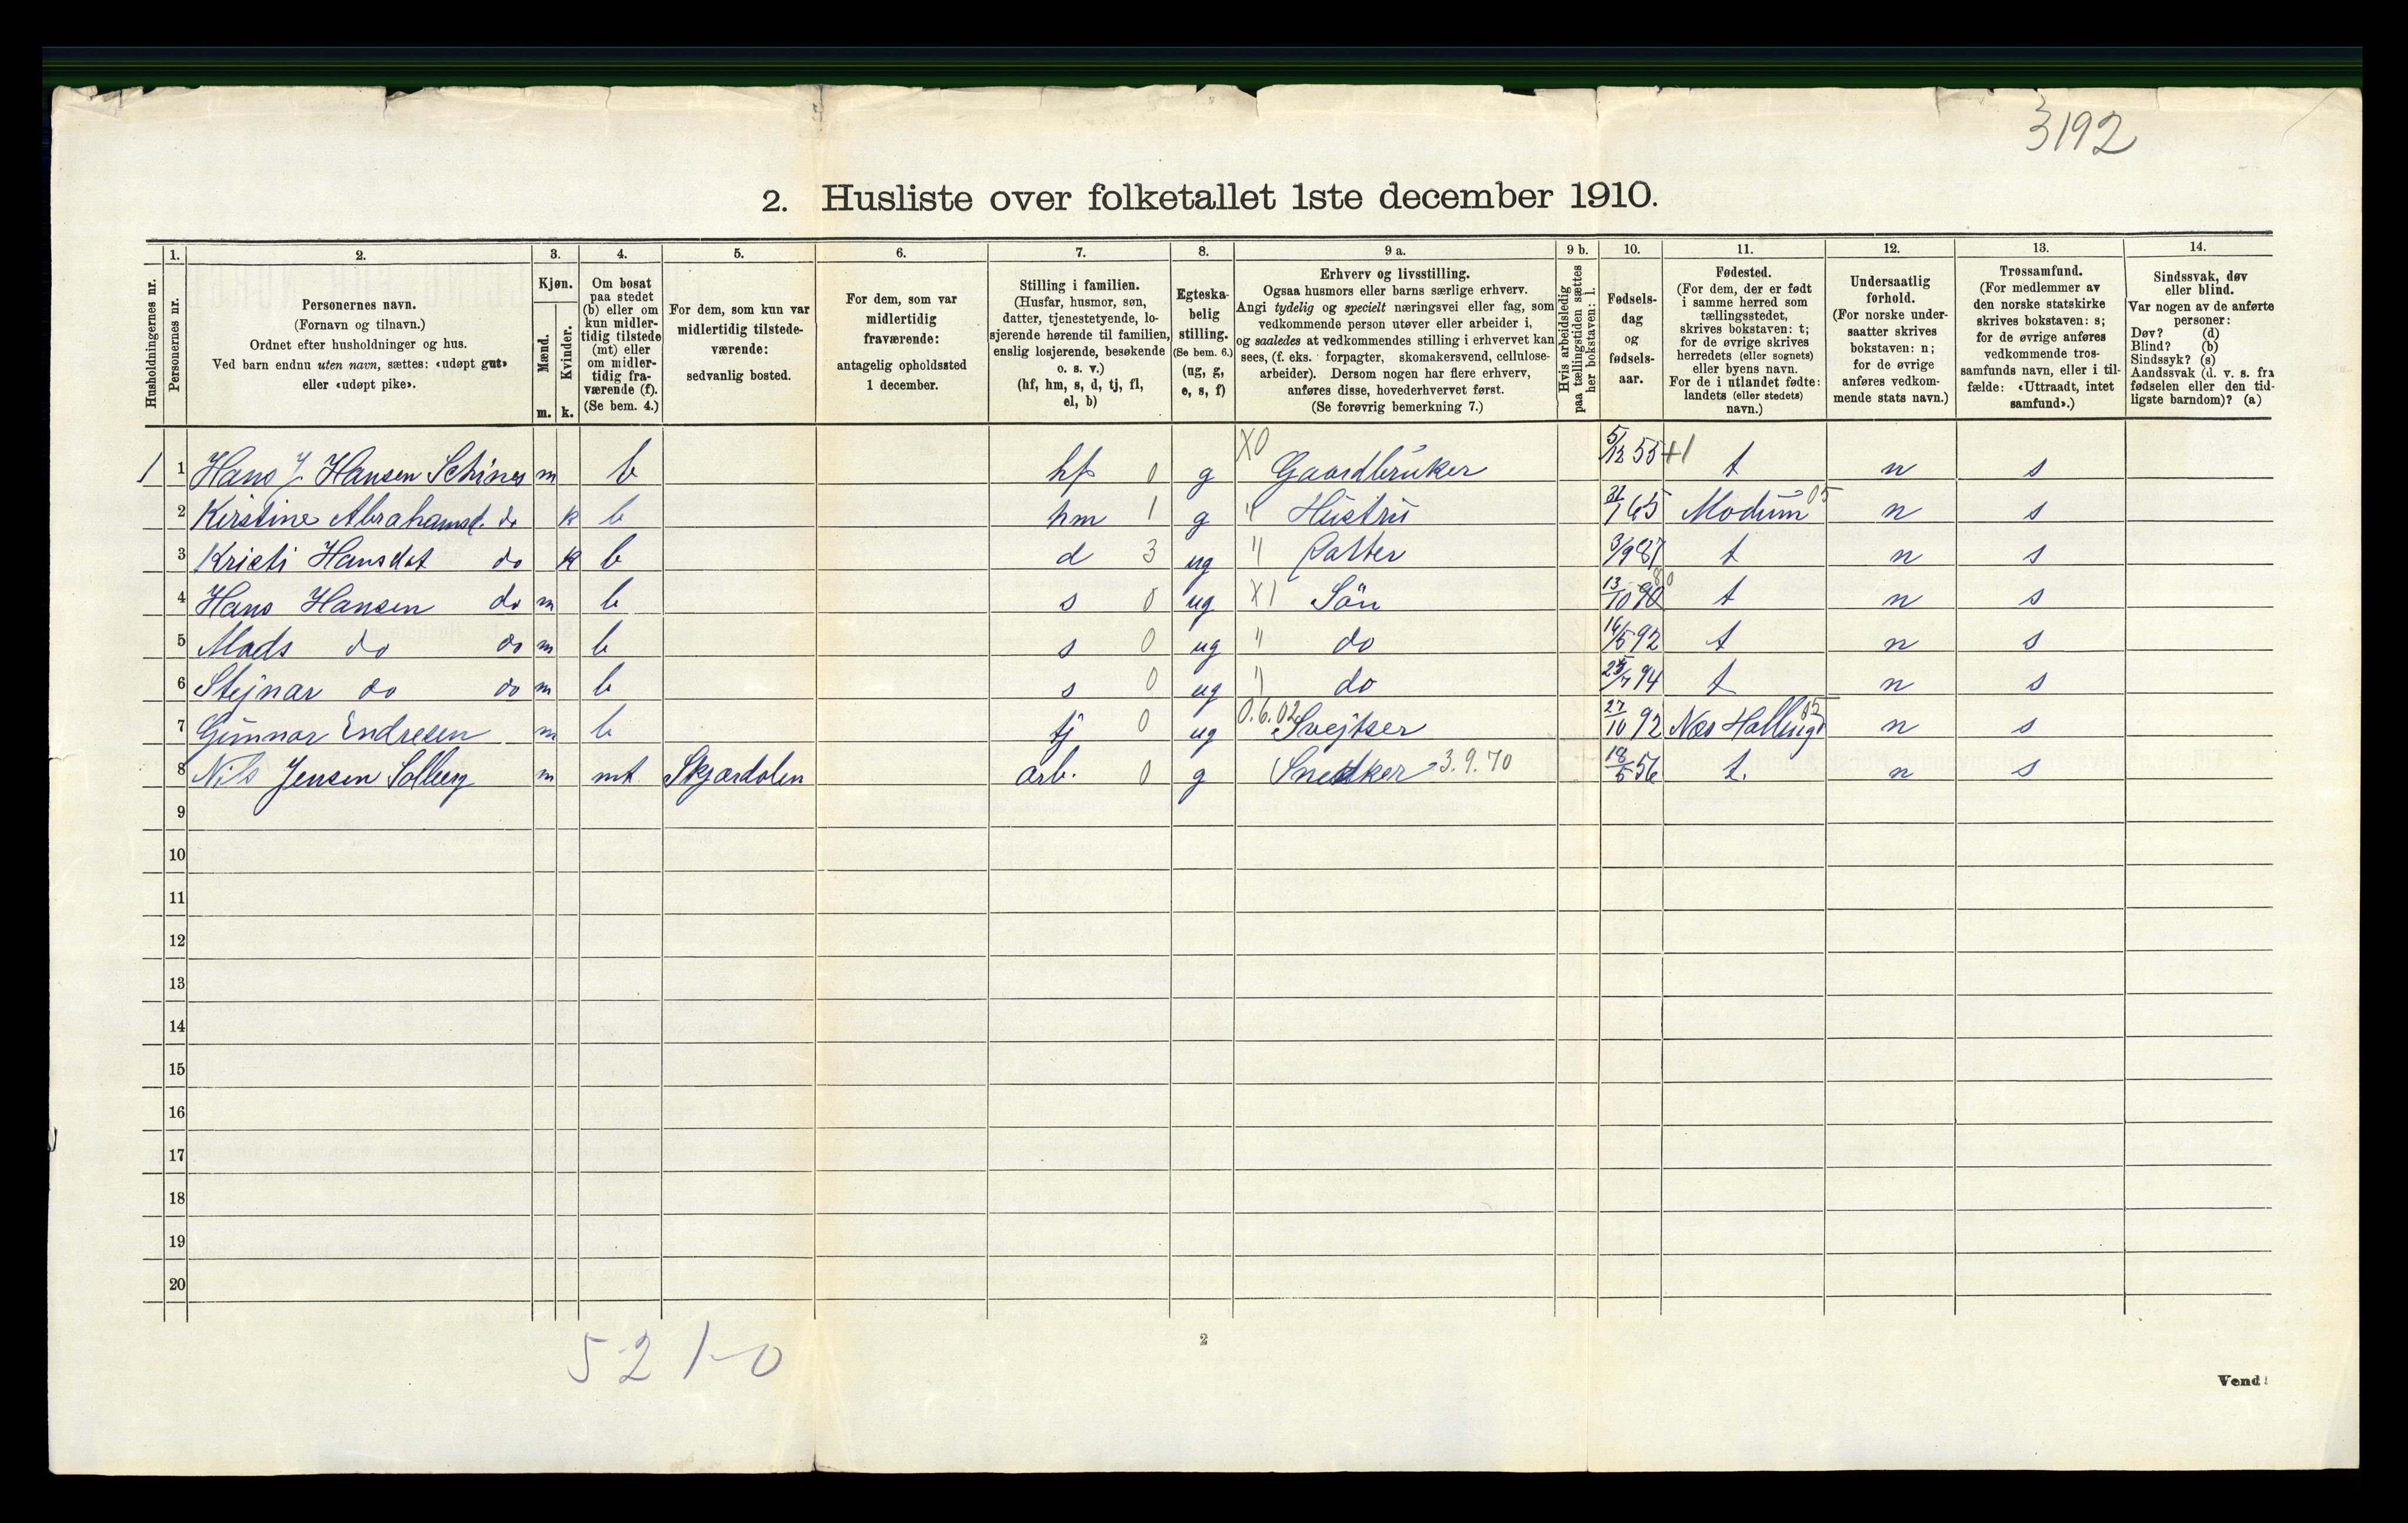 3192
2. Husliste over folketallet 1ste december 1910.
Husholdningernes nr.
1. Personernes nr.
2. Personernes navn. (Fornavn og tilnavn.) Ordnet efter husholdninger og hus. Ved barn endnu uten navn, sættes: «udøpt gut» eller «udøpt pike».
3. Kjøn. Mænd. m. Kvinder. k.
4. Om bosat paa stedet (b) eller om kun midlertidig tilstede (mt) eller om midlertidig fraværende (f). (Se bem. 4.)
5. For dem, som kun var midlertidig tilstedeværende: sedvanlig bosted.
6. For dem, som var midlertidig fraværende: antagelig opholdssted 1 december.
7. Stilling i familien. (Husfar, husmor, søn, datter, tjenestetyende, losjerende hørende til familien, enslig losjerende, besøkende o. s. v.) (hf, hm, s, d, tj, fl, el, b)
8. Egteskabelig stilling. (Se bem. 6.) (ug, g, e, s, f)
9 a. Erhverv og livsstilling. Ogsaa husmors eller barns særlige erhverv. Angi tydelig og specielt næringsvei eller fag, som vedkommende person utøver eller arbeider i, og saaledes at vedkommendes stilling i erhvervet kan sees, (f. eks. forpagter, skomakersvend, cellulosearbeider). Dersom nogen har flere erhverv, anføres disse, hovederhvervet først. (Se forøvrig bemerkning 7.)
9 b. Hvis arbeidsledig paa tællingstiden sættes her bokstaven: l.
10. Fødselsdag og fødselsaar.
11. Fødested. (For dem, der er født i samme herred som tællingsstedet, skrives bokstaven: t; for de øvrige skrives herredets (eller sognets) eller byens navn. For de i utlandet fødte: landets (eller stedets) navn.)
12. Undersaatlig forhold. (For norske undersaatter skrives bokstaven: n; for de øvrige anføres vedkommende stats navn.)
13. Trossamfund. (For medlemmer av den norske statskirke skrives bokstaven: s; for de øvrige anføres vedkommende trossamfunds navn, eller i tilfælde: «Uttraadt, intet samfund».)
14. Sindssvak, døv eller blind. Var nogen av de anførte personer: Døv? (d) Blind? (b) Sindssyk? (s) Aandssvak (d. v. s. fra fødselen eller den tidligste barndom)? (a)
1 1 Hans J. Hansen m b hf 0 g X0 Gaardbruker 5/12 55 +1 t n s
2 Kirstine Abrahamsd. do k b hm 1 g " Hustru 65 Modum 05 n s
3 Kristi Hansdat do k b d 3 ug " Datter 3/9 87 t n s
4 Hans Hansen do m b s 0 ug X1 Søn 13/10 90 t n s
5 Mads do do m b s 0 ug " do 14/5 92 t n s
6 Stejnar do do m b s 0 ug " do 94 t n s
7 Gunnar Endresen m b tj 0 ug 0.6.02 Svejtser 27/10 92 Nes Hallingd 05 n s
8 Nils Jensen Solberg m mt Skjærdalen arb. 0 g Snedker 3.9.70 18/5 56 t. n s
9
10
11
12
13
14
15
16
17
18
19
20
5 2 1-0
2
Vend!